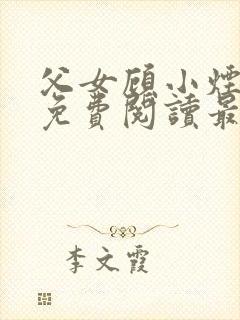 父女顾小煙
免費閱讀最
李文霞